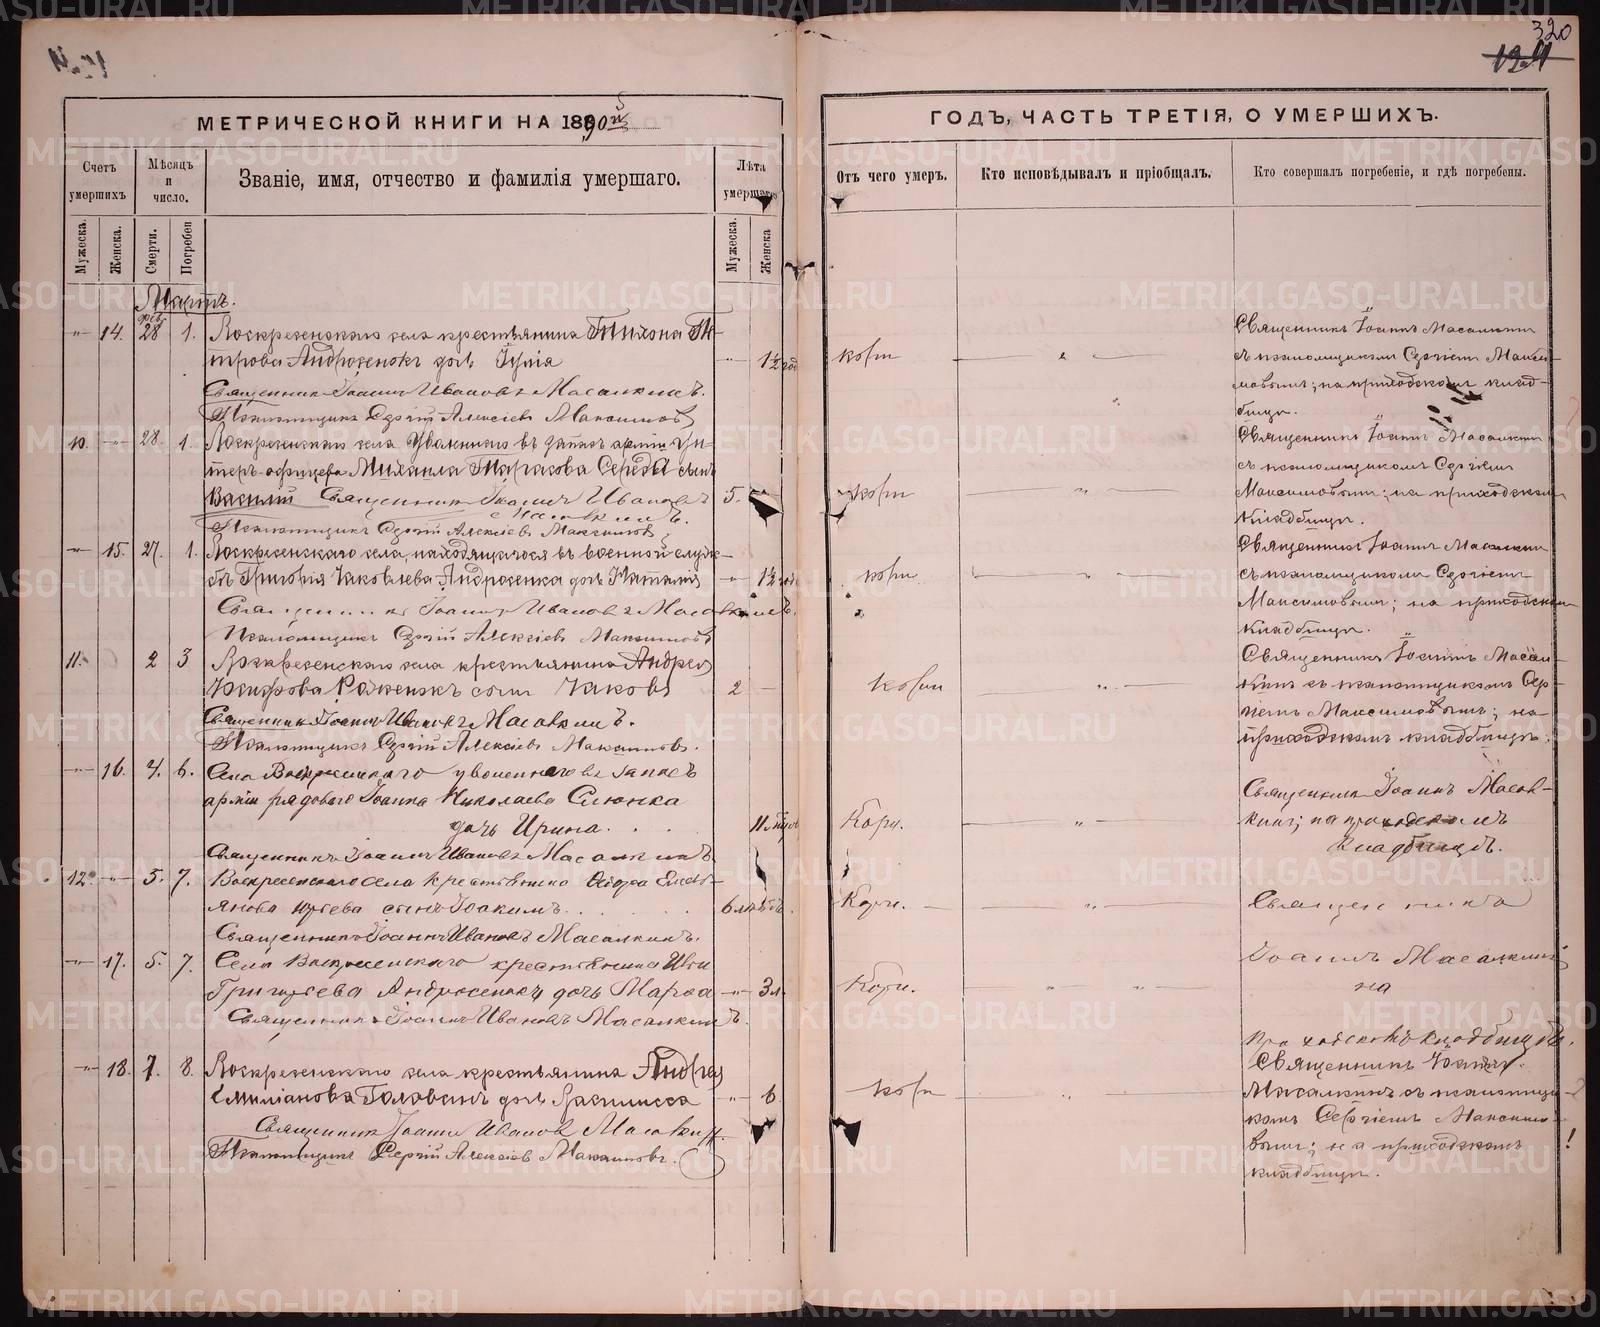 320
124
МЕТРИЧЕСКОЙ КНИГИ НА 1890й
ГОДЪ, ЧАСТЬ ТРЕТІЯ, О УМЕРШИХЪ.
Счетъ умершихъ
Мѣсяцъ и число.
Званіе, имя, отчество и фамилія умершаго.
Лѣта умершаго
Отъ чего умеръ.
Кто исповѣдывалъ и пріобщалъ.
Кто совершалъ погребеніе, и гдѣ погребены.
Мужеска.
Женска.
Смерти.
Погребен
Мужеска.
Женска
Мартъ.
фев.
14. 28 1. Воскресенскаго села крестьянина Тихона
дочь Юлія 1½ год кори
Священникъ Іоаннъ Иванов Масалкинъ.
Псаломщикъ Сергій Алексіевъ Максимовъ
Священникъ Іоаннъ Масалкинъ
съ псаломщикомъ Сергіемъ Макси-
мовымъ; на приходскомъ клад-
бищѣ.
10. 28. 1. Воскресенскаго села уволеннаго въ запасъ арміи ун-
теръ-офицера Михаила Тарасова Середы сынъ
Василій Священникъ Іоаннъ Ивановъ 5. кори
Масалкинъ.
Псаломщикъ Сергій Алексіевъ Максимовъ
Священникъ Іоаннъ Масалкинъ
съ псаломщикомъ Сергіемъ
Максимовымъ; на приходскомъ
кладбищѣ.
15. 27. 1. Воскресенскаго села, находящагося въ военной служ-
бѣ Григорія Яковлева Андросенка дочь Наталія 1½ год кори
Священникъ Іоаннъ Ивановъ Масалкинъ.
Псаломщикъ Сергій Алексіевъ Максимовъ
Священникъ Іоаннъ Масалкинъ
съ псаломщикомъ Сергіемъ
Максимовымъ; на приходском
кладбищѣ.
11. 2 3 Воскресенскаго села крестьянина Андрея
сынъ Яковъ 2 кори
Священникъ Іоаннъ Ивановъ Масалкинъ.
Псаломщикъ Сергій Алексіевъ Максимовъ.
Священникъ Іоаннъ Масал-
кинъ съ псаломщикомъ Сер-
гіемъ Максимовымъ; на
приходскомъ кладбищѣ.
16. 4. 6. Села Воскресенского уволенного въ запасъ
арміи рядового Іоанна Николаева Слюнка
дочь Ирина. 11 мѣсяц Кори.
Священникъ Іоаннъ Ивановъ Масалкинъ
Священникъ Іоаннъ Масал-
кинъ; на приходскомъ
кладбищѣ.
12. 5. 7. Воскресенского села крестьянина Ѳедора Емель-
янова сынъ Іоакимъ. 6 лѣтъ. Кори.
Священникъ Іоаннъ Ивановъ Масалкинъ.
Священникъ
17. 5. 7. Села Воскресенского крестьянина
Григорьева дочь Марѳа 3 л. Кори.
Священникъ Іоаннъ Ивановъ Масалкинъ
Іоаннъ Масалкинъ
на
приходскомъ кладбищѣ.
18. 7. 8. Воскресенскаго села крестьянина Андрея
Емиліанова дочь Василисса 6. кори
Священникъ Іоаннъ Иванов Масалкин.
Псаломщикъ Сергій Алексіевъ Максимовъ.
Священникъ Іоаннъ
Масалкинъ съ псаломщи-
комъ Сергіемъ Максимо-
вымъ; на приходскомъ
кладбищѣ.
METRIKI.GASO-URAL.RU